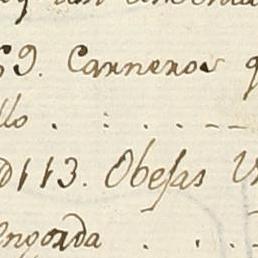 69. Carneros q
llo . . . - -
D 113. Obejas V
engorda . . -